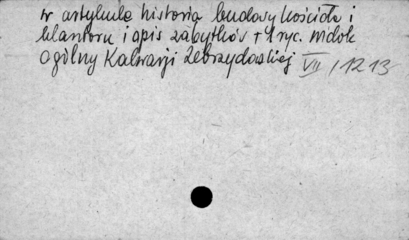 w artykule historia budowy kościoła i
klasztoru i opis zabytków + 1 ryc. widok
ogólny Kalwarji Zebrzydoskiej VII / 1213